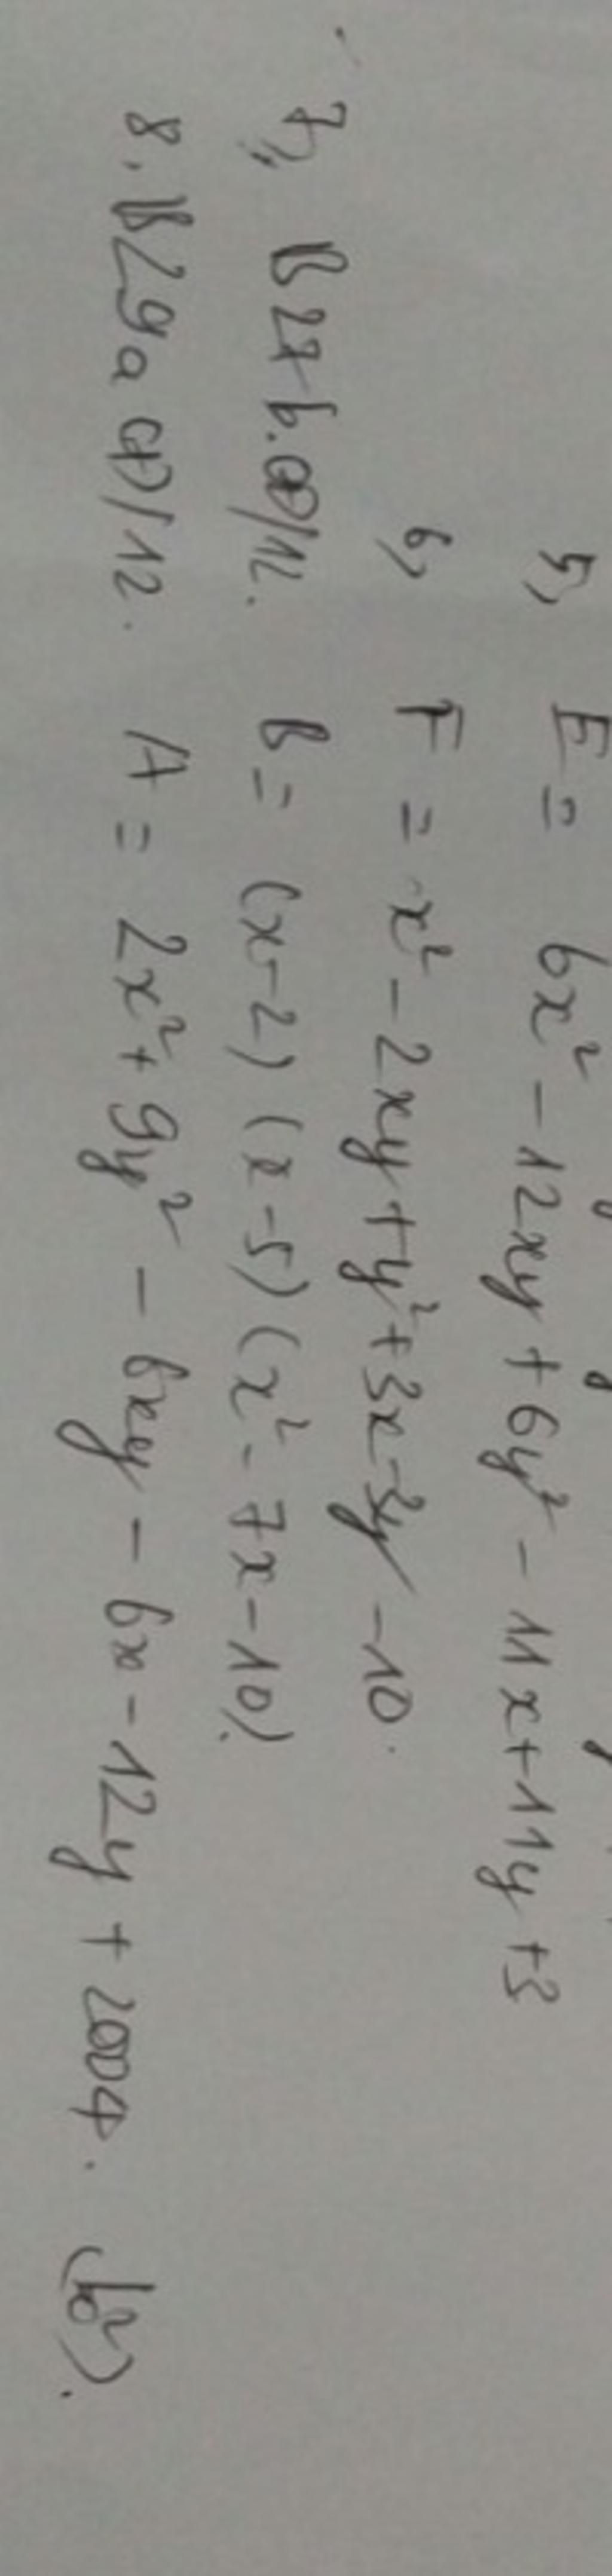 5, E = 6x² - 12xy + 6y² - 11x + 11y + 3
6, F = x² - 2xy + y² + 3x - 3y - 10.
7, B27b.CĐ/12. B = (x-2)(x-5)(x² - 7x - 10).
8. B29a CĐ/12. A = 2x² + 9y² - 6xy - 6x - 12y + 2004.